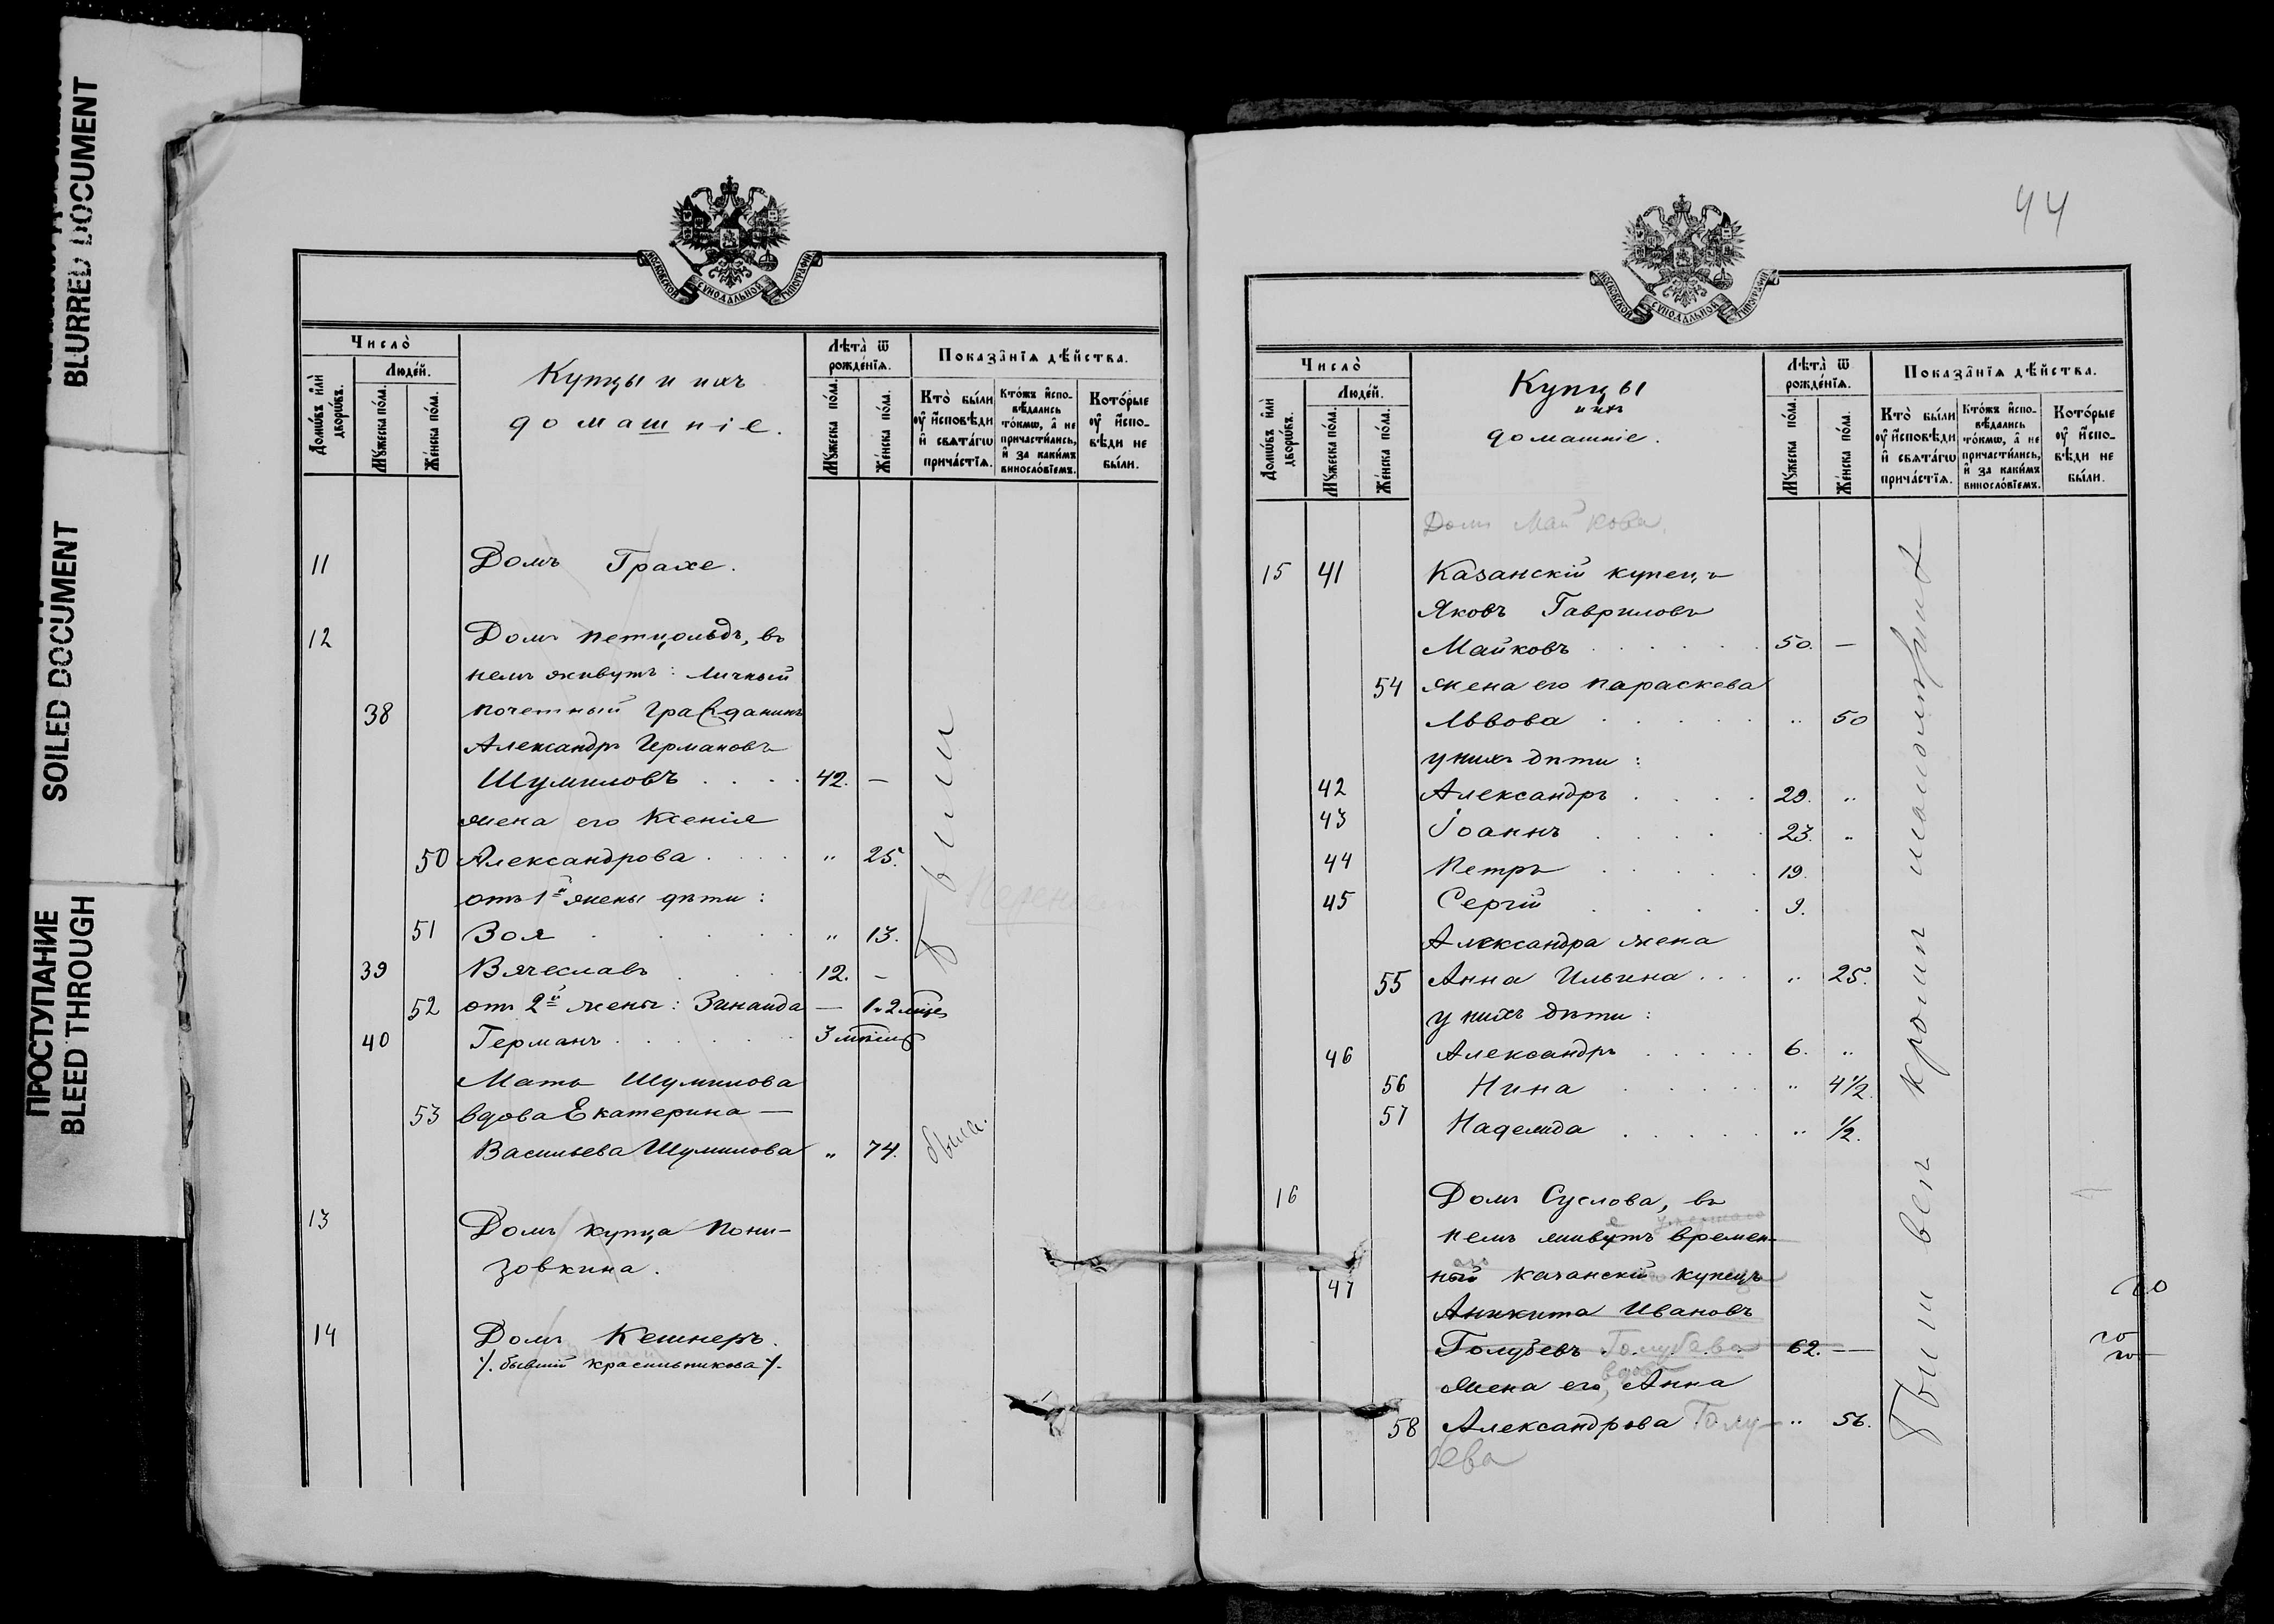 BLURRED DOCUMENT
SOILED DOCUMENT
ПРОСТУПАНИЕ
BLEED THROUGH
МОСКОВСКОЙ СѴНОДАЛЬНОЙ ТИПОГРАФІИ
Число̀
Людє́й.
Домѡ́въ и҆лѝ дворѡ́въ.
Мꙋ́жеска по́ла.
Же́нска по́ла.
Купцы и ихъ
домашніе.
Лѣ́та ѿ рожде́нїѧ.
Мꙋ́жеска по́ла.
Же́нска по́ла.
Показа̑нїѧ дѣ́йства.
Кто̀ бы́ли ᲂу҆ и҆́сповѣди и҆ свѧта́гѡ прича́стїѧ.
Кто́жъ и҆спо-вѣ́дались то́кмѡ, а҆ не причасти́лись, и҆ за каки́мъ винослові́емъ.
Кото́рые ᲂу҆ и҆́спо-вѣди не бы́ли.
11 Домъ Грахе.
12 Домъ Петцольдъ, въ
немъ живутъ: личный
38 почетный гражданинъ
Александръ Германовъ
Шумиловъ . . . . 42. —
жена его Ксенія
50 Александрова . . . . „ 25.
отъ 1й жены дѣти:
51 Зоя . . . . . „ 13.
39 Вячеславъ . . . 12. —
52 отъ 2й жены: Зинаида — 1 и 2 мѣс
40 Германъ . . . . . 3 мѣсяц
Мать Шумилова
53 вдова Екатерина —
Васильева Шумилова „ 74.
были
были.
13 Домъ купца Пони-
зовкина.
14 Домъ Кешнеръ.
/. бывшій красильникова /.
44
МОСКОВСКОЙ СѴНОДАЛЬНОЙ ТИПОГРАФІИ
Число̀
Людє́й.
Домѡ́въ и҆лѝ дворѡ́въ.
Мꙋ́жеска по́ла.
Же́нска по́ла.
Купцы
и ихъ
домашніе.
Лѣ́та ѿ рожде́нїѧ.
Мꙋ́жеска по́ла.
Же́нска по́ла.
Показа̑нїѧ дѣ́йства.
Кто̀ бы́ли ᲂу҆ и҆́сповѣди и҆ свѧта́гѡ прича́стїѧ.
Кто́жъ и҆спо-вѣ́дались то́кмѡ, а҆ не причасти́лись, и҆ за каки́мъ винослові́емъ.
Кото́рые ᲂу҆ и҆́спо-вѣди не бы́ли.
Домъ Майкова.
15 41 Казанскій купецъ
Яковъ Гавриловъ
Майковъ . . . . . 50. —
54 жена его Параскева
Львова . . . . . „ 50
у нихъ дѣти:
42 Александръ . . . . 29. „
43 Іоаннъ . . . . . 23. „
44 Петръ . . . . . 19.
45 Сергій . . . . 9.
Александра жена
55 Анна Ильина . . . „ 25.
у нихъ дѣти:
46 Александръ . . . . . 6. „
56 Нина . . . . . „ 4 1/2.
57 Надежда . . . . . „ 1/2.
16 Домъ Суслова, въ
немъ живутъ времен-
47 ный казанскій купецъ
Аникита Ивановъ
Голубевъ Голубева 62. —
жена его, Анна
вдова
58 Александрова Голу- „ 56.
бева
Были всѣ кромѣ малолѣтнихъ